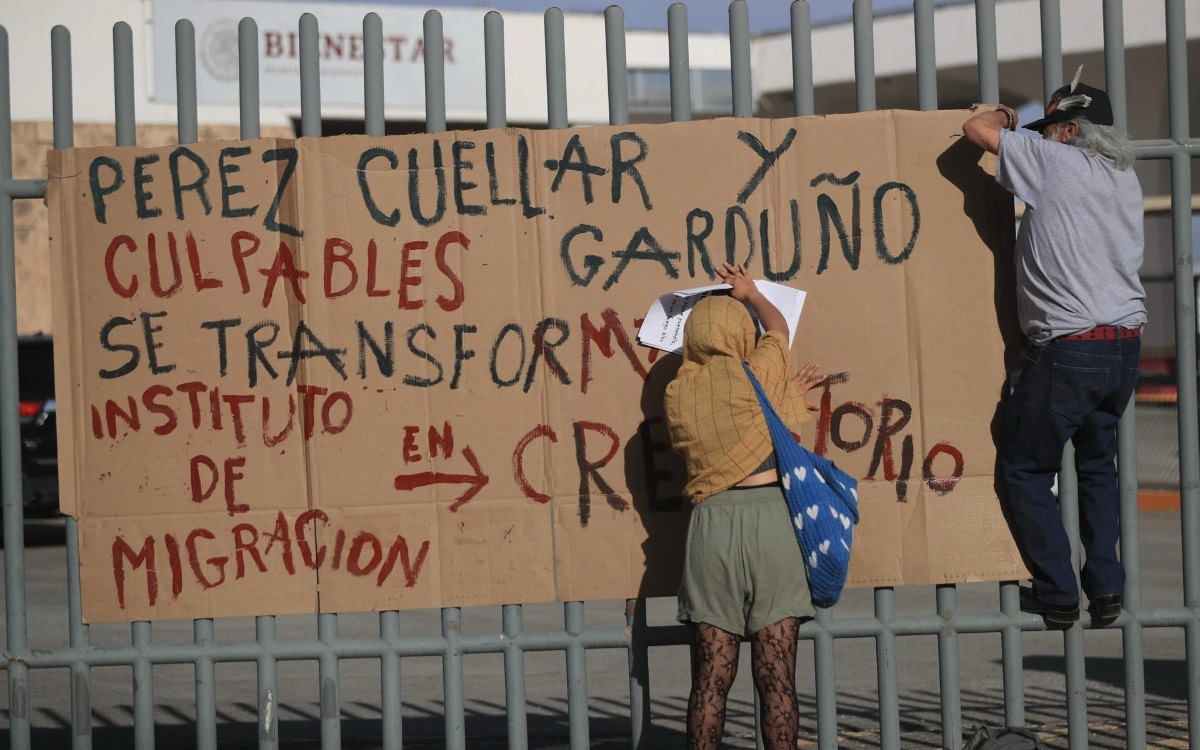 BIENESTAR
PEREZ CUELLAR Y
GARDUÑO
CULPABLES
SE TRANSFORMA
INSTITUTO
DE
MIGRACION
EN →
CREMATORIO